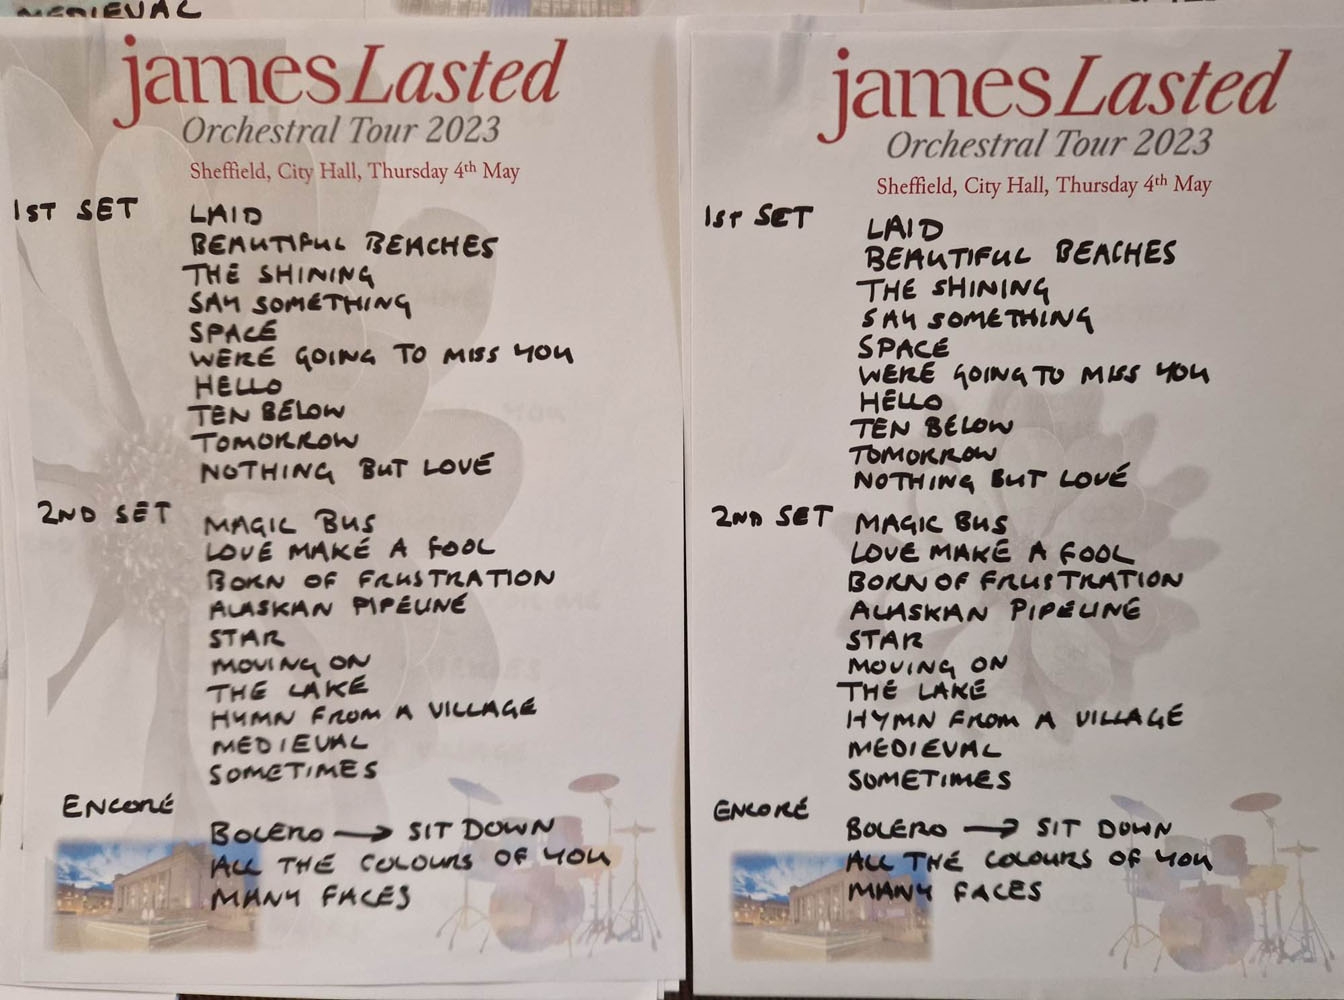 MEDIEVAL
james Lasted
Orchestral Tour 2023
Sheffield, City Hall, Thursday 4th May
1ST SET
LAID
BEAUTIFUL BEACHES
THE SHINING
SAY SOMETHING
SPACE
WERE GOING TO MISS YOU
HELLO
TEN BELOW
TOMORROW
NOTHING BUT LOVE
2ND SET
MAGIC BUS
LOVE MAKE A FOOL
BORN OF FRUSTRATION
ALASKAN PIPELINE
STAR
MOVING ON
THE LAKE
HYMN FROM A VILLAGE
MEDIEVAL
SOMETIMES
ENCORE
BOLERO → SIT DOWN
ALL THE COLOURS OF YOU
MANY FACES
james Lasted
Orchestral Tour 2023
Sheffield, City Hall, Thursday 4th May
1ST SET
LAID
BEAUTIFUL BEACHES
THE SHINING
SAY SOMETHING
SPACE
WERE GOING TO MISS YOU
HELLO
TEN BELOW
TOMORROW
NOTHING BUT LOVE
2ND SET
MAGIC BUS
LOVE MAKE A FOOL
BORN OF FRUSTRATION
ALASKAN PIPELINE
STAR
MOVING ON
THE LAKE
HYMN FROM A VILLAGE
MEDIEVAL
SOMETIMES
ENCORE
BOLERO → SIT DOWN
ALL THE COLOURS OF YOU
MANY FACES